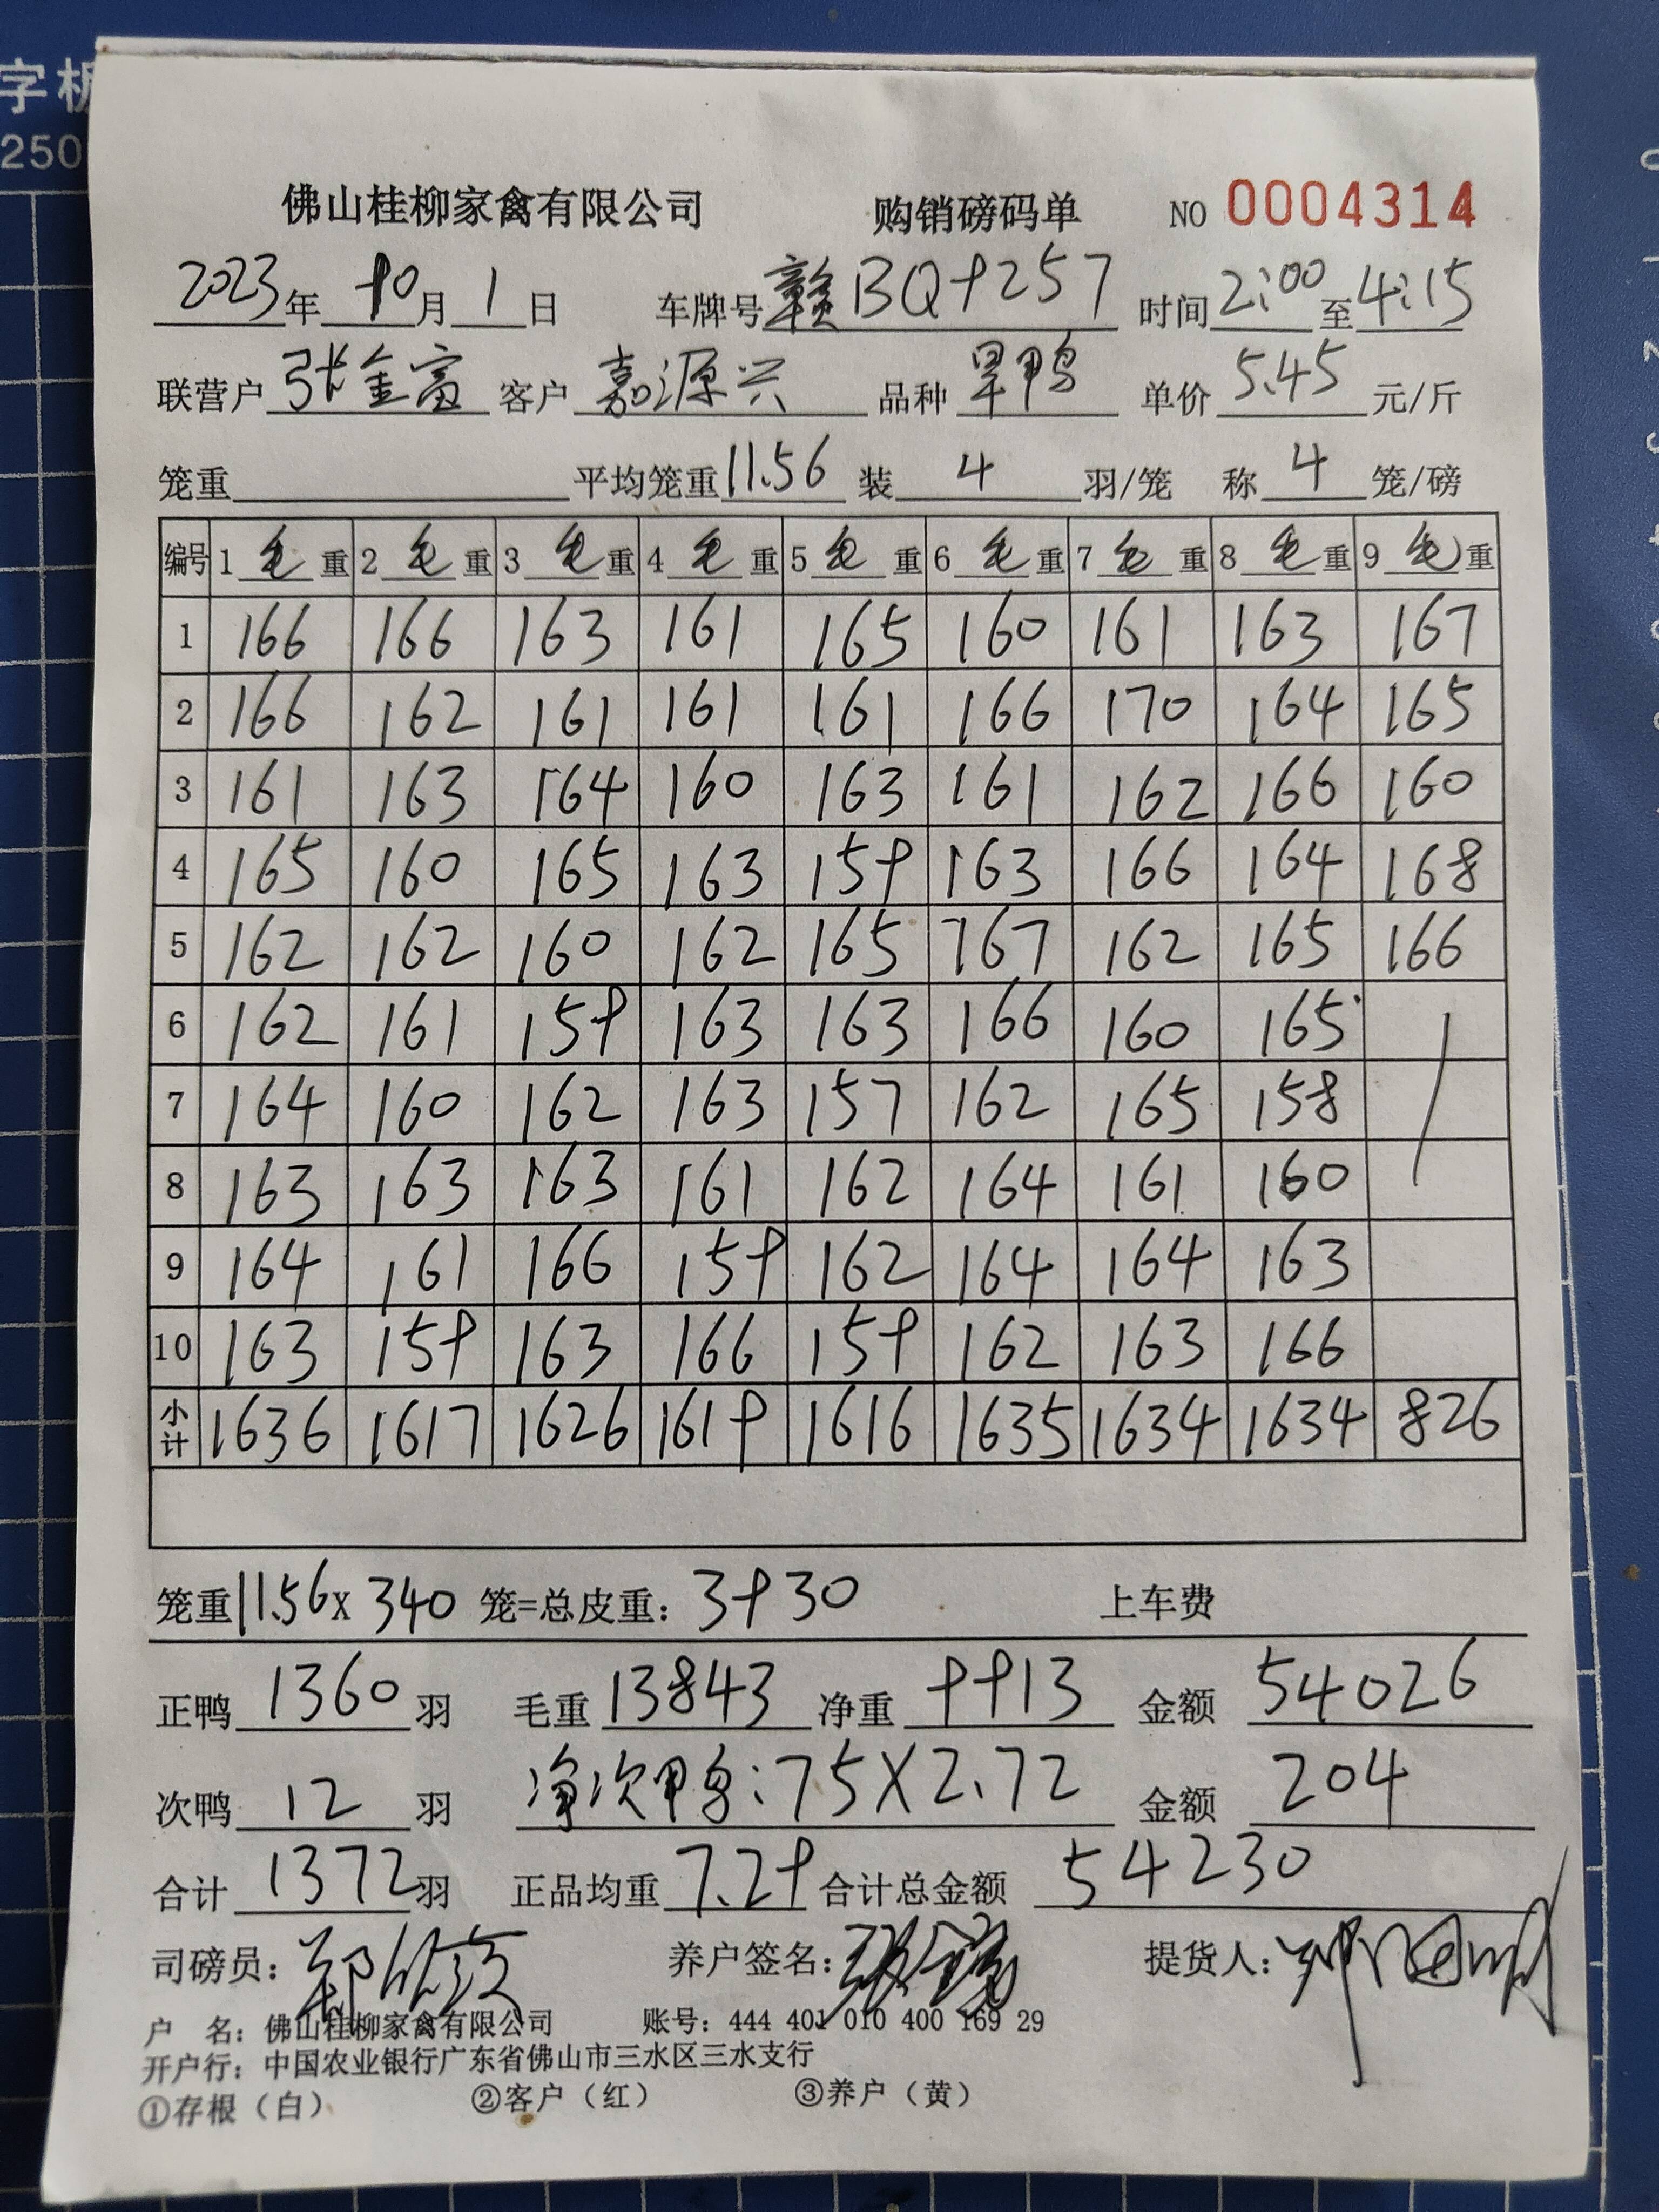 字板
250
佛山桂柳家禽有限公司 购销磅码单 NO 0004314
2023年 10月 1日 车牌号 赣BQ9257 时间 2:00 至 4:15
联营户 张金富 客户 嘉源兴 品种 旱鸭 单价 5.45 元/斤
笼重 平均笼重 11.56 装 4 羽/笼 称 4 笼/磅
编号 1 毛 重 2 毛 重 3 毛 重 4 毛 重 5 毛 重 6 毛 重 7 毛 重 8 毛 重 9 毛 重
1 166 166 163 161 165 160 161 163 167
2 166 162 161 161 161 166 170 164 165
3 161 163 164 160 163 161 162 166 160
4 165 160 165 163 159 163 166 164 168
5 162 162 160 162 165 167 162 165 166
6 162 161 159 163 163 166 160 165
7 164 160 162 163 157 162 165 158
8 163 163 163 161 162 164 161 160
9 164 161 166 159 162 164 164 163
10 163 159 163 166 159 162 163 166
小计 1636 1617 1626 1619 1616 1635 1634 1634 826
笼重 11.56 X 340 笼=总皮重: 3930 上车费
正鸭 1360 羽 毛重 13843 净重 9913 金额 54026
次鸭 12 羽 净次鸭: 75X2.72 金额 204
合计 1372 羽 正品均重 7.29 合计总金额 54230
司磅员: 养户签名: 张金富 提货人:
户 名: 佛山桂柳家禽有限公司 账号: 444 401 010 400 169 29
开户行: 中国农业银行广东省佛山市三水区三水支行
①存根(白) ②客户(红) ③养户(黄)